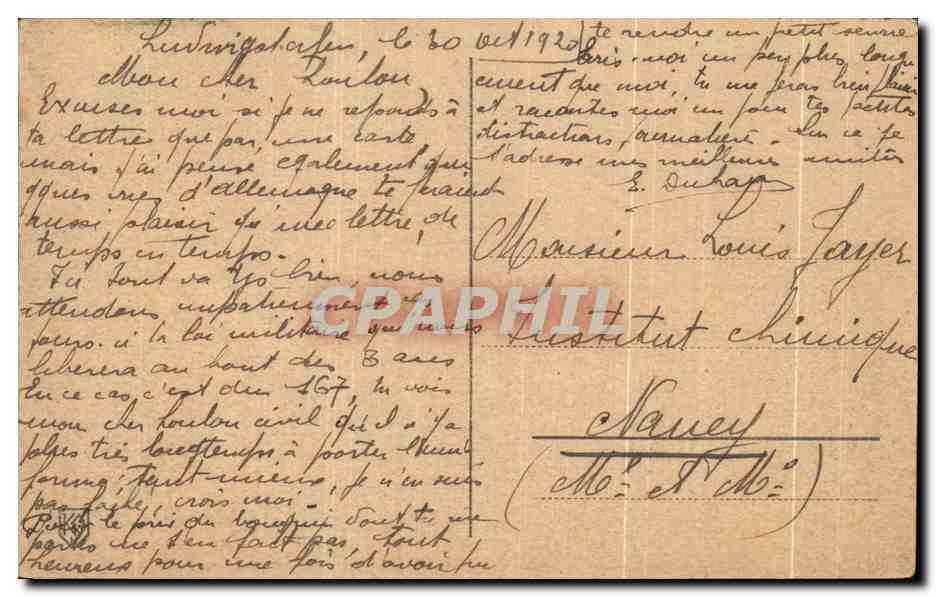 Ludwigshafen, le 30 Oct 1920
Mon cher Loulou
Excuses moi si je ne réponds à
ta lettre que par une carte
mais j'ai pensé également que
ques vues d'Allemagne te feraient
aussi plaisir qu'une lettre, de
temps en temps.
Ici tout va tjs bien, nous
attendons impatiemment
jours. à la loi militaire qui nous
libèrera au bout des 3 ans
En ce cas, c'est du 167, tu vois
mon cher Loulou civil qu'il n'y a
plus très longtemps à porter l'uni
forme, tant mieux, je n'en suis
pas fâché, crois moi.
Pour le prix du bouquin dont tu me
parles ne t'en fait pas, tout
heureux pour une fois d'avoir pu
te rendre un petit service
Ecris-moi un peu plus longue
ment que moi, tu me feras bien plaisir
et racontes moi un peu tes petites
distractions, Sur ce je
t'adresse mes meilleures amitiés
E. Duhap
Monsieur Louis Jayer
Institut chimique
Nancy
(Mthe & Mlle)
CPAPHIL